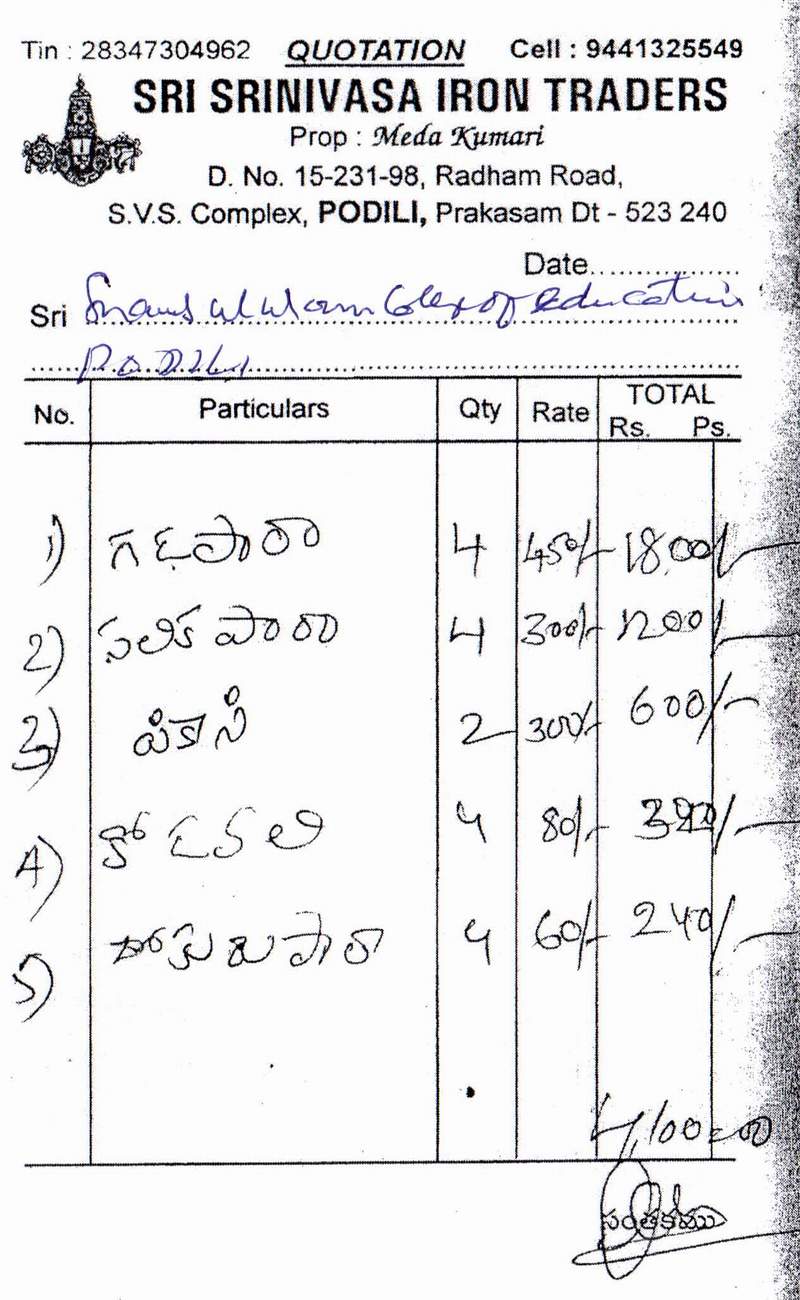 Tin : 28347304962 QUOTATION Cell : 9441325549
SRI SRINIVASA IRON TRADERS
Prop : Meda Kumari
D. No. 15-231-98, Radham Road,
S.V.S. Complex, PODILI, Prakasam Dt - 523 240
Date
Sri of education
PODILI
No. Particulars Qty Rate TOTAL
Rs. Ps.
1) గడ్డపారా 4 450/- 1800/-
2) సలికపారా 4 300/- 1200/-
3) పికాసి 2 300/- 600/-
4) కొడవలి 4 80/- 320/-
5) పారా 4 60/- 240/-
4,100=00
సంతకము